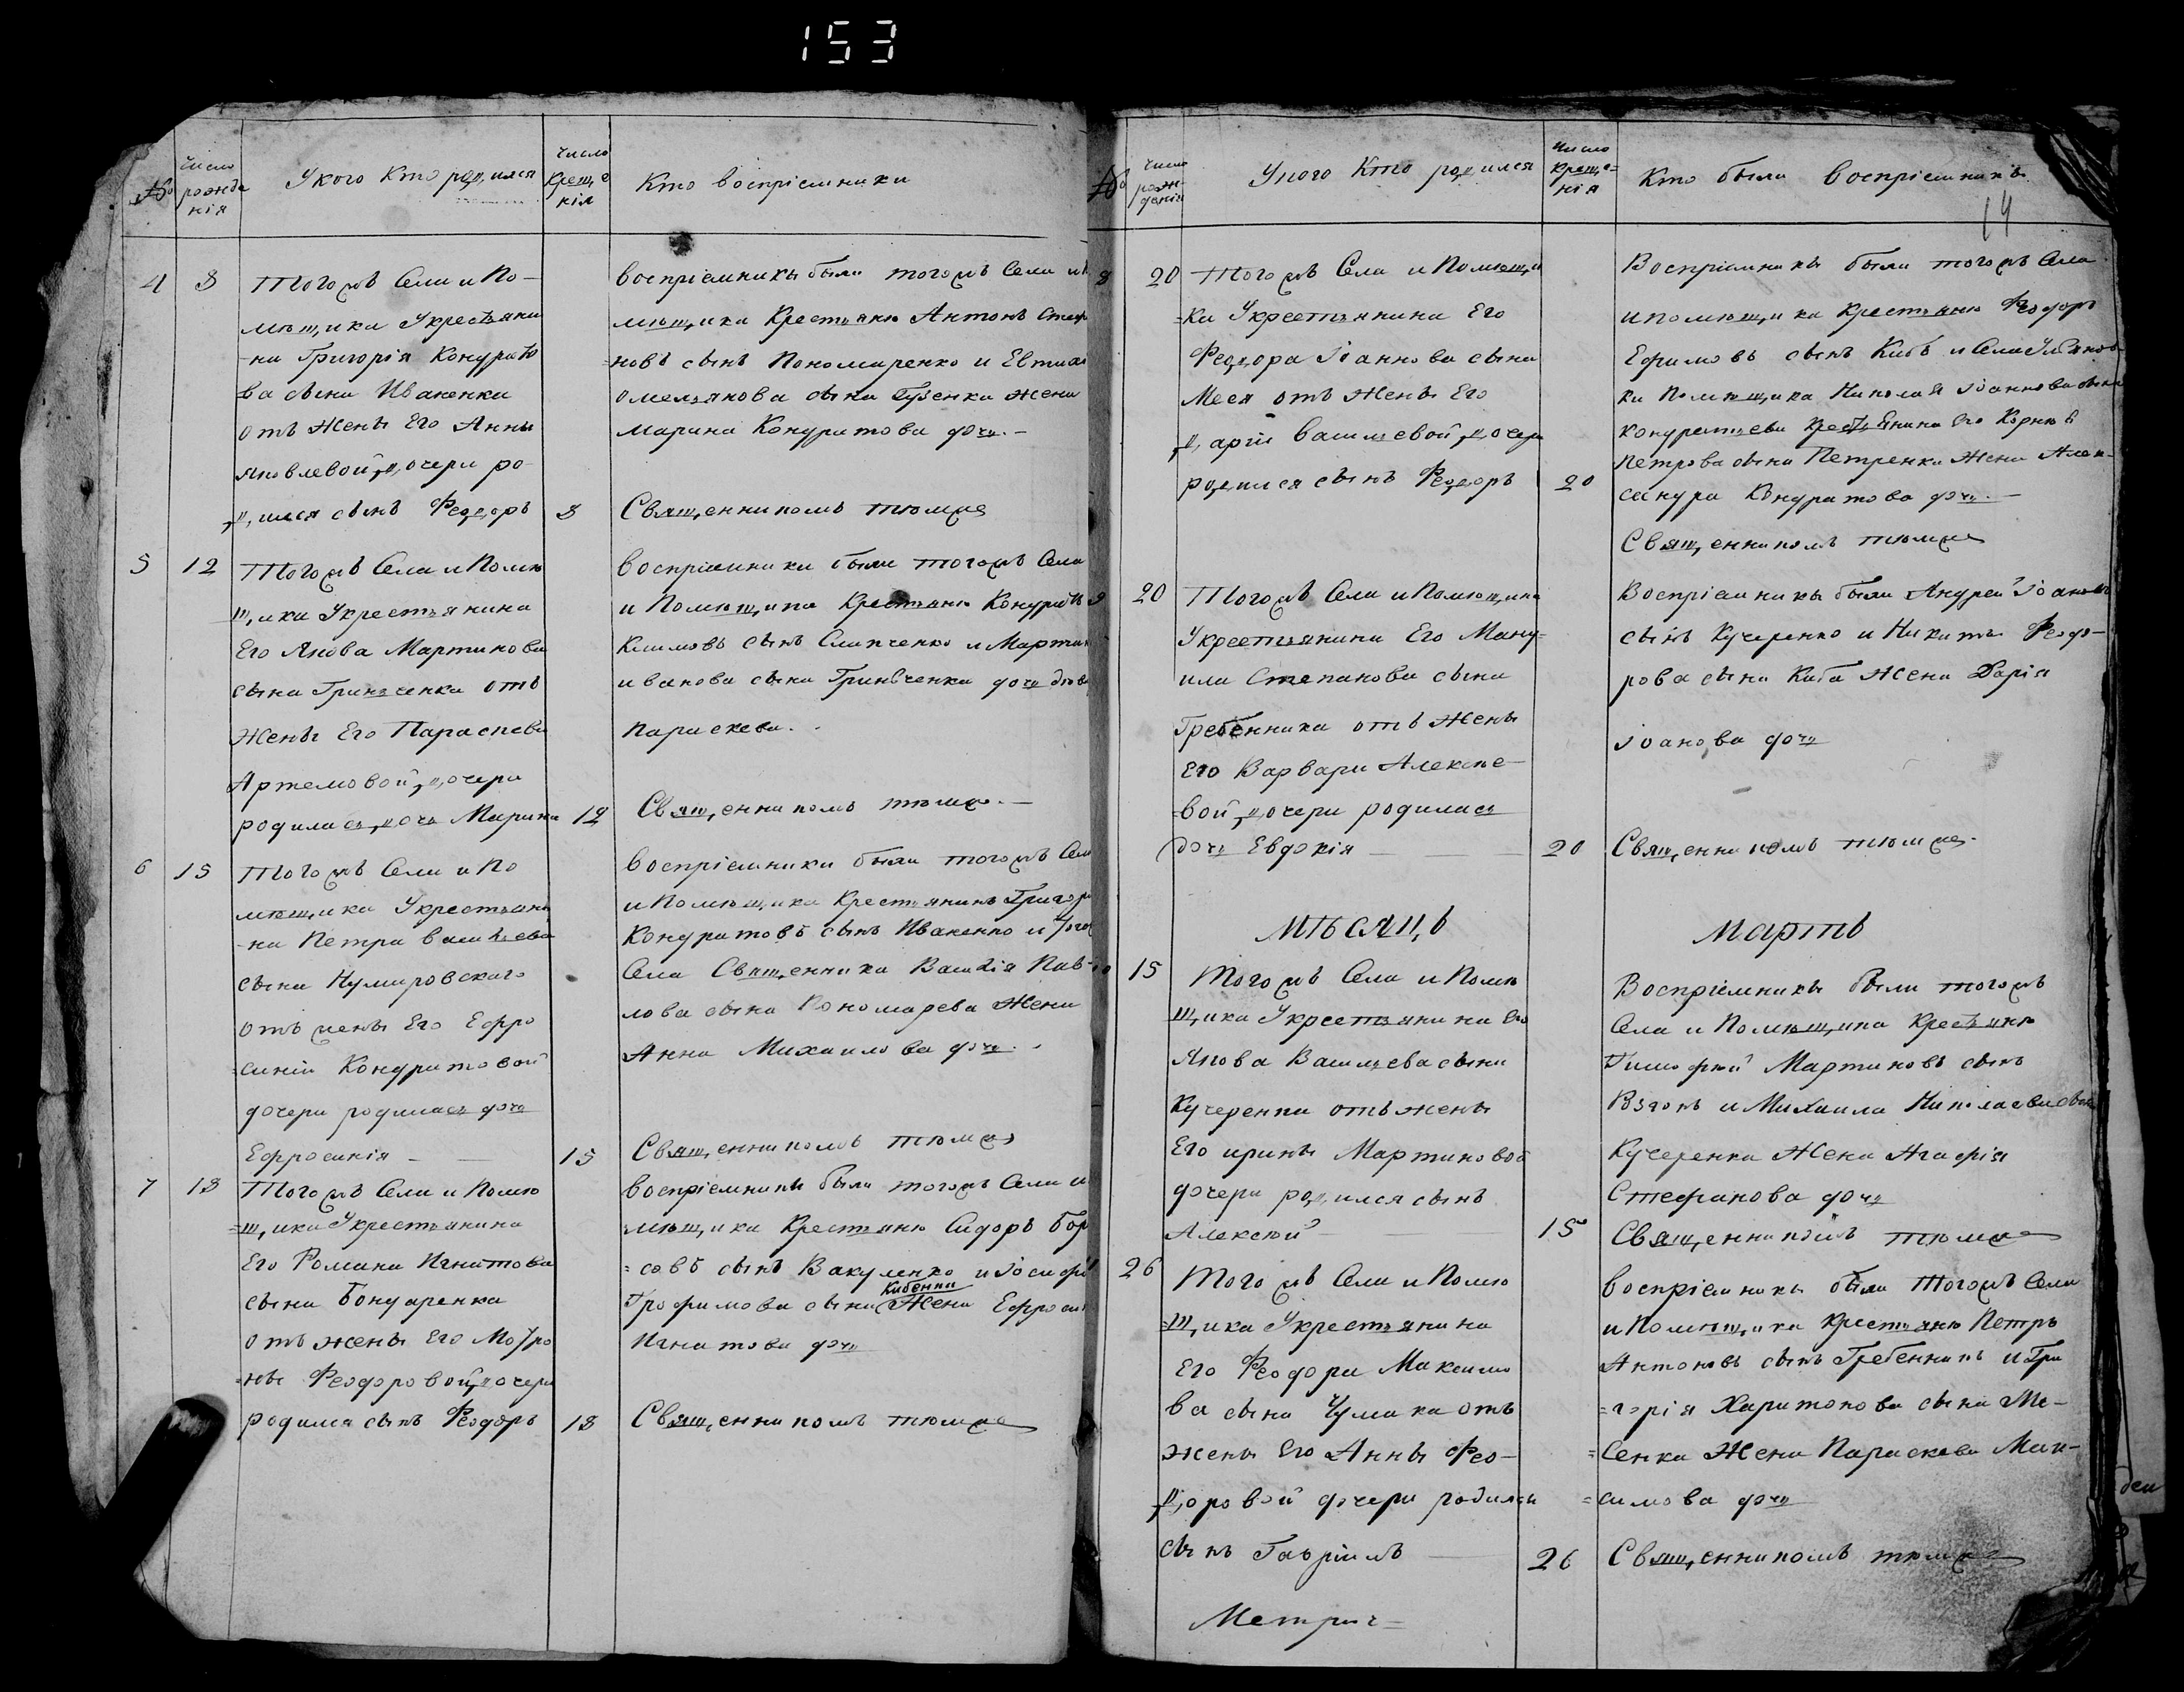 153
№
число рожде нія
У кого кто родился
число Крещенія
Кто воспріемники
4 8
Того жъ Села и По-
мѣщика Укрестьяни
-на Григорія Кондрато
ва сына Иваненка
отъ жены Его Анны
Яковлевой дочери ро-
дился сынъ Феодоръ 8
воспріемники были того жъ Села и
мѣщика Крестьяне Антонъ
новъ сынъ Пономаренко и
омельянова сына жена
Марина Кондратова дочь.-
Священникомъ тѣмже
5 12
Того жъ Села и Помѣ
щика Укрестьянина
Его Якова Мартинова
сына Гринченка отъ
жены Его Параскеви
Артемовой дочери
родилась дочь Марина 12
воспріемники были того жъ Села
и Помѣщика Крестьяне
Климовъ сынъ Слипченко и
иванова сына Гринченка дочь
параскева.
Священникомъ тѣмже.-
6 15
Того жъ Села и По
мѣщика Укрестьяни
-на Петра васильева
сына
отъ жены Его Ефро
=синіи Кондратовой
дочери родилась дочь
Ефросинія - 15
воспріемники были того жъ Села
и Помѣщика Крестьянинъ
Кондратовъ сынъ Иваненко и
Села Священника Василія Пав-
лова сына Пономарева жена
Анна Михаилова дочь.
Священникомъ тѣмже
7 18
Того жъ Села и Помѣ
=щика Укрестьянина
Его Романа Игнатова
сына Бондаренка
отъ жены Его Мотро
=ны Феодоровой дочери
родился сынъ Феодоръ 18
воспріемники были того жъ Села и
мѣщика Крестьяне Сидоръ
=совъ сынъ Вакуленко и
Трофимова сына Кибенка жена
Игнатова дочь
Священникомъ тѣмже
№
число рожденія
У кого кто родился
число креще=нія
Кто были воспріемники
14
8 20
Того жъ Села и Помѣщи
=ка Укрестьянина Его
Феодора Іоаннова сына
Меся отъ жены Его
дарiи Васильевой дочери
родился сынъ Феодоръ 20
Воспріемники были того жъ Села
и помѣщика крестьяне Феодоръ
Ефимовъ сынъ Кибъ и Села
ки Помѣщика Николая Іоаннова сына
кондратьева крестьянина Его Корнѣя
Петрова сына Петренка жена Алек-
сандра Кондратова дочь.-
Священникомъ тѣмже
9 20
Того жъ Села и Помѣщика
Укрестьянина Его Ману=
ила Степанова сына
Гребенника отъ жены
Его Варвари Алексѣе-
-вой дочери родилась
дочь Евдокія 20
Воспріемники были Андрей Іоановъ
сынъ Кучеренко и Никиты Феодо-
рова сына Киба жена Дарія
іоанова дочь
Священникомъ тѣмже.
Мѣсяцъ Мартъ
10 15
Того жъ Села и Помѣ
щика Укрестьянина Его
Якова Васильева сына
Кучеренка отъ жены
Его ирины Мартиновой
дочери родился сынъ
Алексѣй 15
Воспріемники были того жъ
Села и Помѣщика Крестьяне
Тимофѣй Мартиновъ сынъ
и Михаила Николаева сына
Кучеренка жена Агафія
Стефанова дочь
Священникомъ тѣмже
26
Того жъ Села и Помѣ
=щика Укрестьянина
Его Феодора Максимо
ва сына Чумака отъ
жены Его Анны Фео-
доровой дочери родился
сынъ Гавріилъ 26
воспріемники были того жъ Села
и Помѣщика Крестьяне Петръ
Антоновъ сынъ Гребенникъ и Гри
=горія Харитонова сына Ме-
=сенка жена Параскева Мак-
=симова дочь
Священникомъ тѣмже
Метрич=